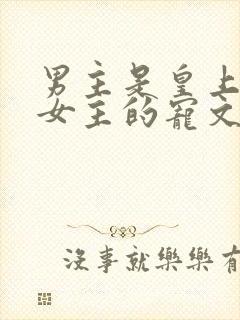 男主是皇上
女主的寵文
沒事就樂樂有